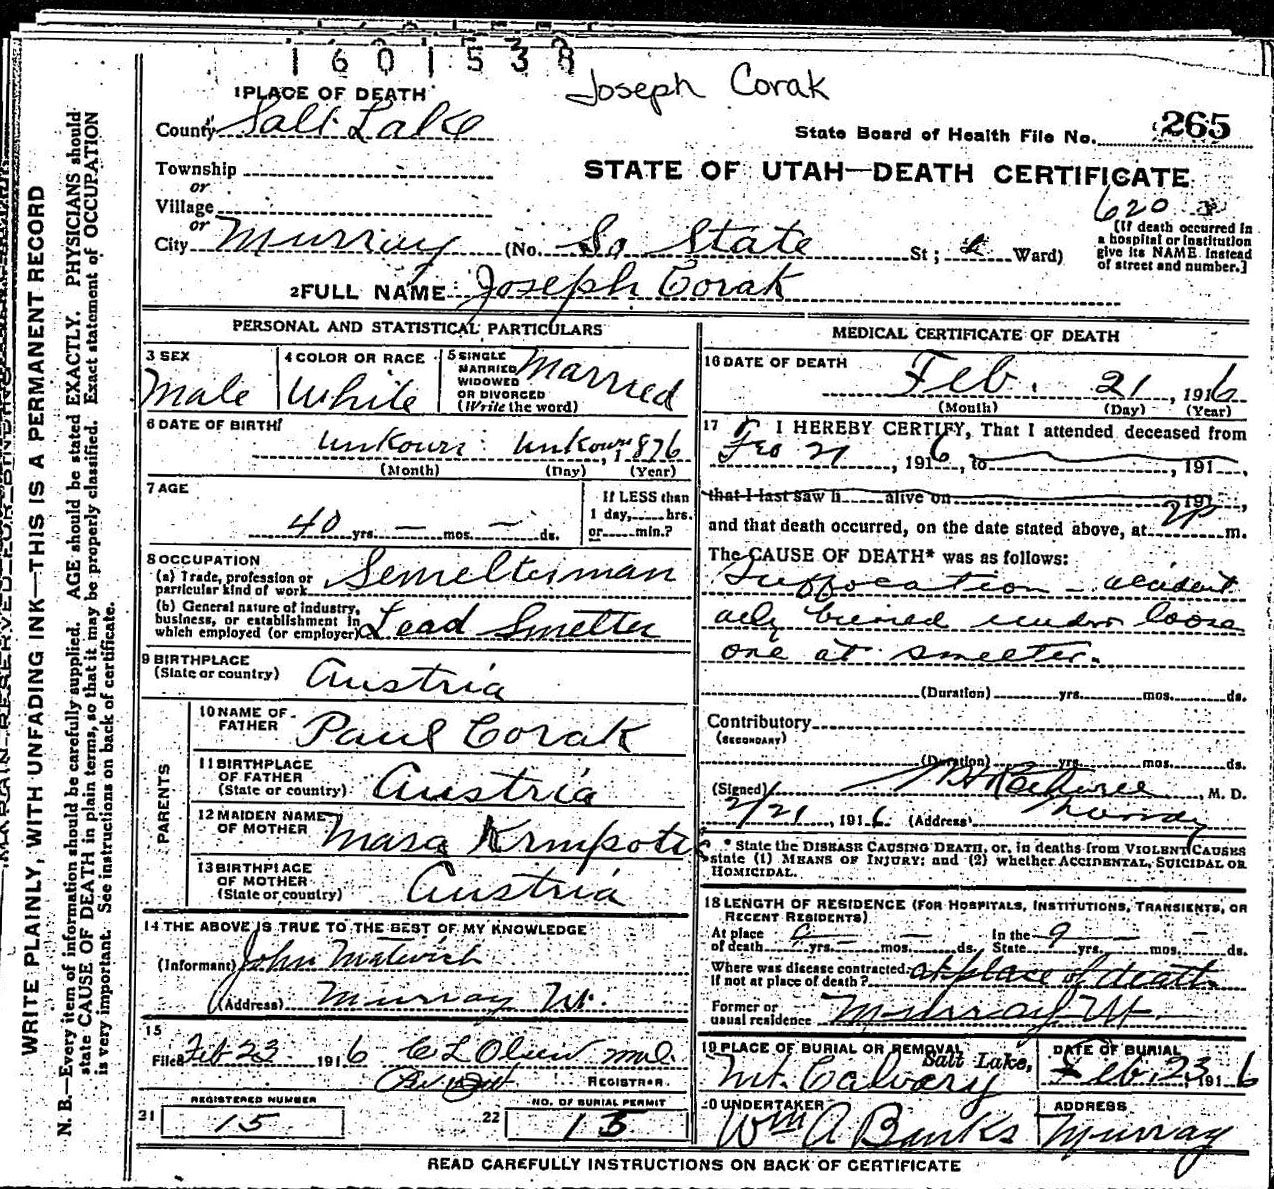 1601538
Joseph Corak
1 PLACE OF DEATH
County Salt Lake
State Board of Health File No. 265
Township
or
Village
or
STATE OF UTAH—DEATH CERTIFICATE
620
City Murray (No. So State St; 2 Ward)
[If death occurred in
a hospital or institution
give its NAME instead
of street and number.]
2 FULL NAME Joseph Corak
PERSONAL AND STATISTICAL PARTICULARS
3 SEX
Male
4 COLOR OR RACE
White
5 SINGLE
MARRIED
WIDOWED
OR DIVORCED
(Write the word)
Married
6 DATE OF BIRTH
unkown unkown, 1876
(Month) (Day) (Year)
7 AGE
40 yrs. — mos. — ds.
If LESS than
1 day,......hrs.
or......min.?
8 OCCUPATION
(a) Trade, profession or
particular kind of work Semelterman
(b) General nature of industry,
business, or establishment in
which employed (or employer) Lead Smelter
9 BIRTHPLACE
(State or country) Austria
PARENTS
10 NAME OF
FATHER Paul Corak
11 BIRTHPLACE
OF FATHER
(State or country) Austria
12 MAIDEN NAME
OF MOTHER Masa Krmpotic
13 BIRTHPLACE
OF MOTHER
(State or country) Austria
14 THE ABOVE IS TRUE TO THE BEST OF MY KNOWLEDGE
(Informant) John Matovich
(Address) Murray Ut.
15
Filed Feb 23 1916 C L Olsen M.D.
REGISTRAR
REGISTERED NUMBER
21 15
22 NO. OF BURIAL PERMIT
13
MEDICAL CERTIFICATE OF DEATH
16 DATE OF DEATH
Feb. 21, 1916
(Month) (Day) (Year)
17 I HEREBY CERTIFY, That I attended deceased from
Feb 21, 1916, to, 191
that I last saw h alive on 191,
and that death occurred, on the date stated above, at 2P m.
The CAUSE OF DEATH* was as follows:
Suffocation - accident
aly buried under loose
ore at smelter.
(Duration) yrs. mos. ds.
Contributory
(SECONDARY)
(Duration) yrs. mos. ds.
(Signed) , M. D.
2/21, 1916 (Address) Murray
* State the DISEASE CAUSING DEATH, or, in deaths from VIOLENT CAUSES
state (1) MEANS OF INJURY; and (2) whether ACCIDENTAL, SUICIDAL OR
HOMICIDAL.
18 LENGTH OF RESIDENCE (FOR HOSPITALS, INSTITUTIONS, TRANSIENTS, OR
RECENT RESIDENTS)
At place
of death yrs. mos. ds. In the
State 9 yrs. mos. ds.
Where was disease contracted,
if not at place of death? at place of death
Former or
usual residence Murray Ut
19 PLACE OF BURIAL OR REMOVAL
Salt Lake,
Mt. Calvary
DATE OF BURIAL
Feb. 23, 1916
20 UNDERTAKER
Wm A Banks
ADDRESS
Murray
READ CAREFULLY INSTRUCTIONS ON BACK OF CERTIFICATE
WRITE PLAINLY, WITH UNFADING INK—THIS IS A PERMANENT RECORD
N. B.—Every item of information should be carefully supplied. AGE should be stated EXACTLY. PHYSICIANS should
state CAUSE OF DEATH in plain terms, so that it may be properly classified. Exact statement of OCCUPATION
is very important. See instructions on back of certificate.